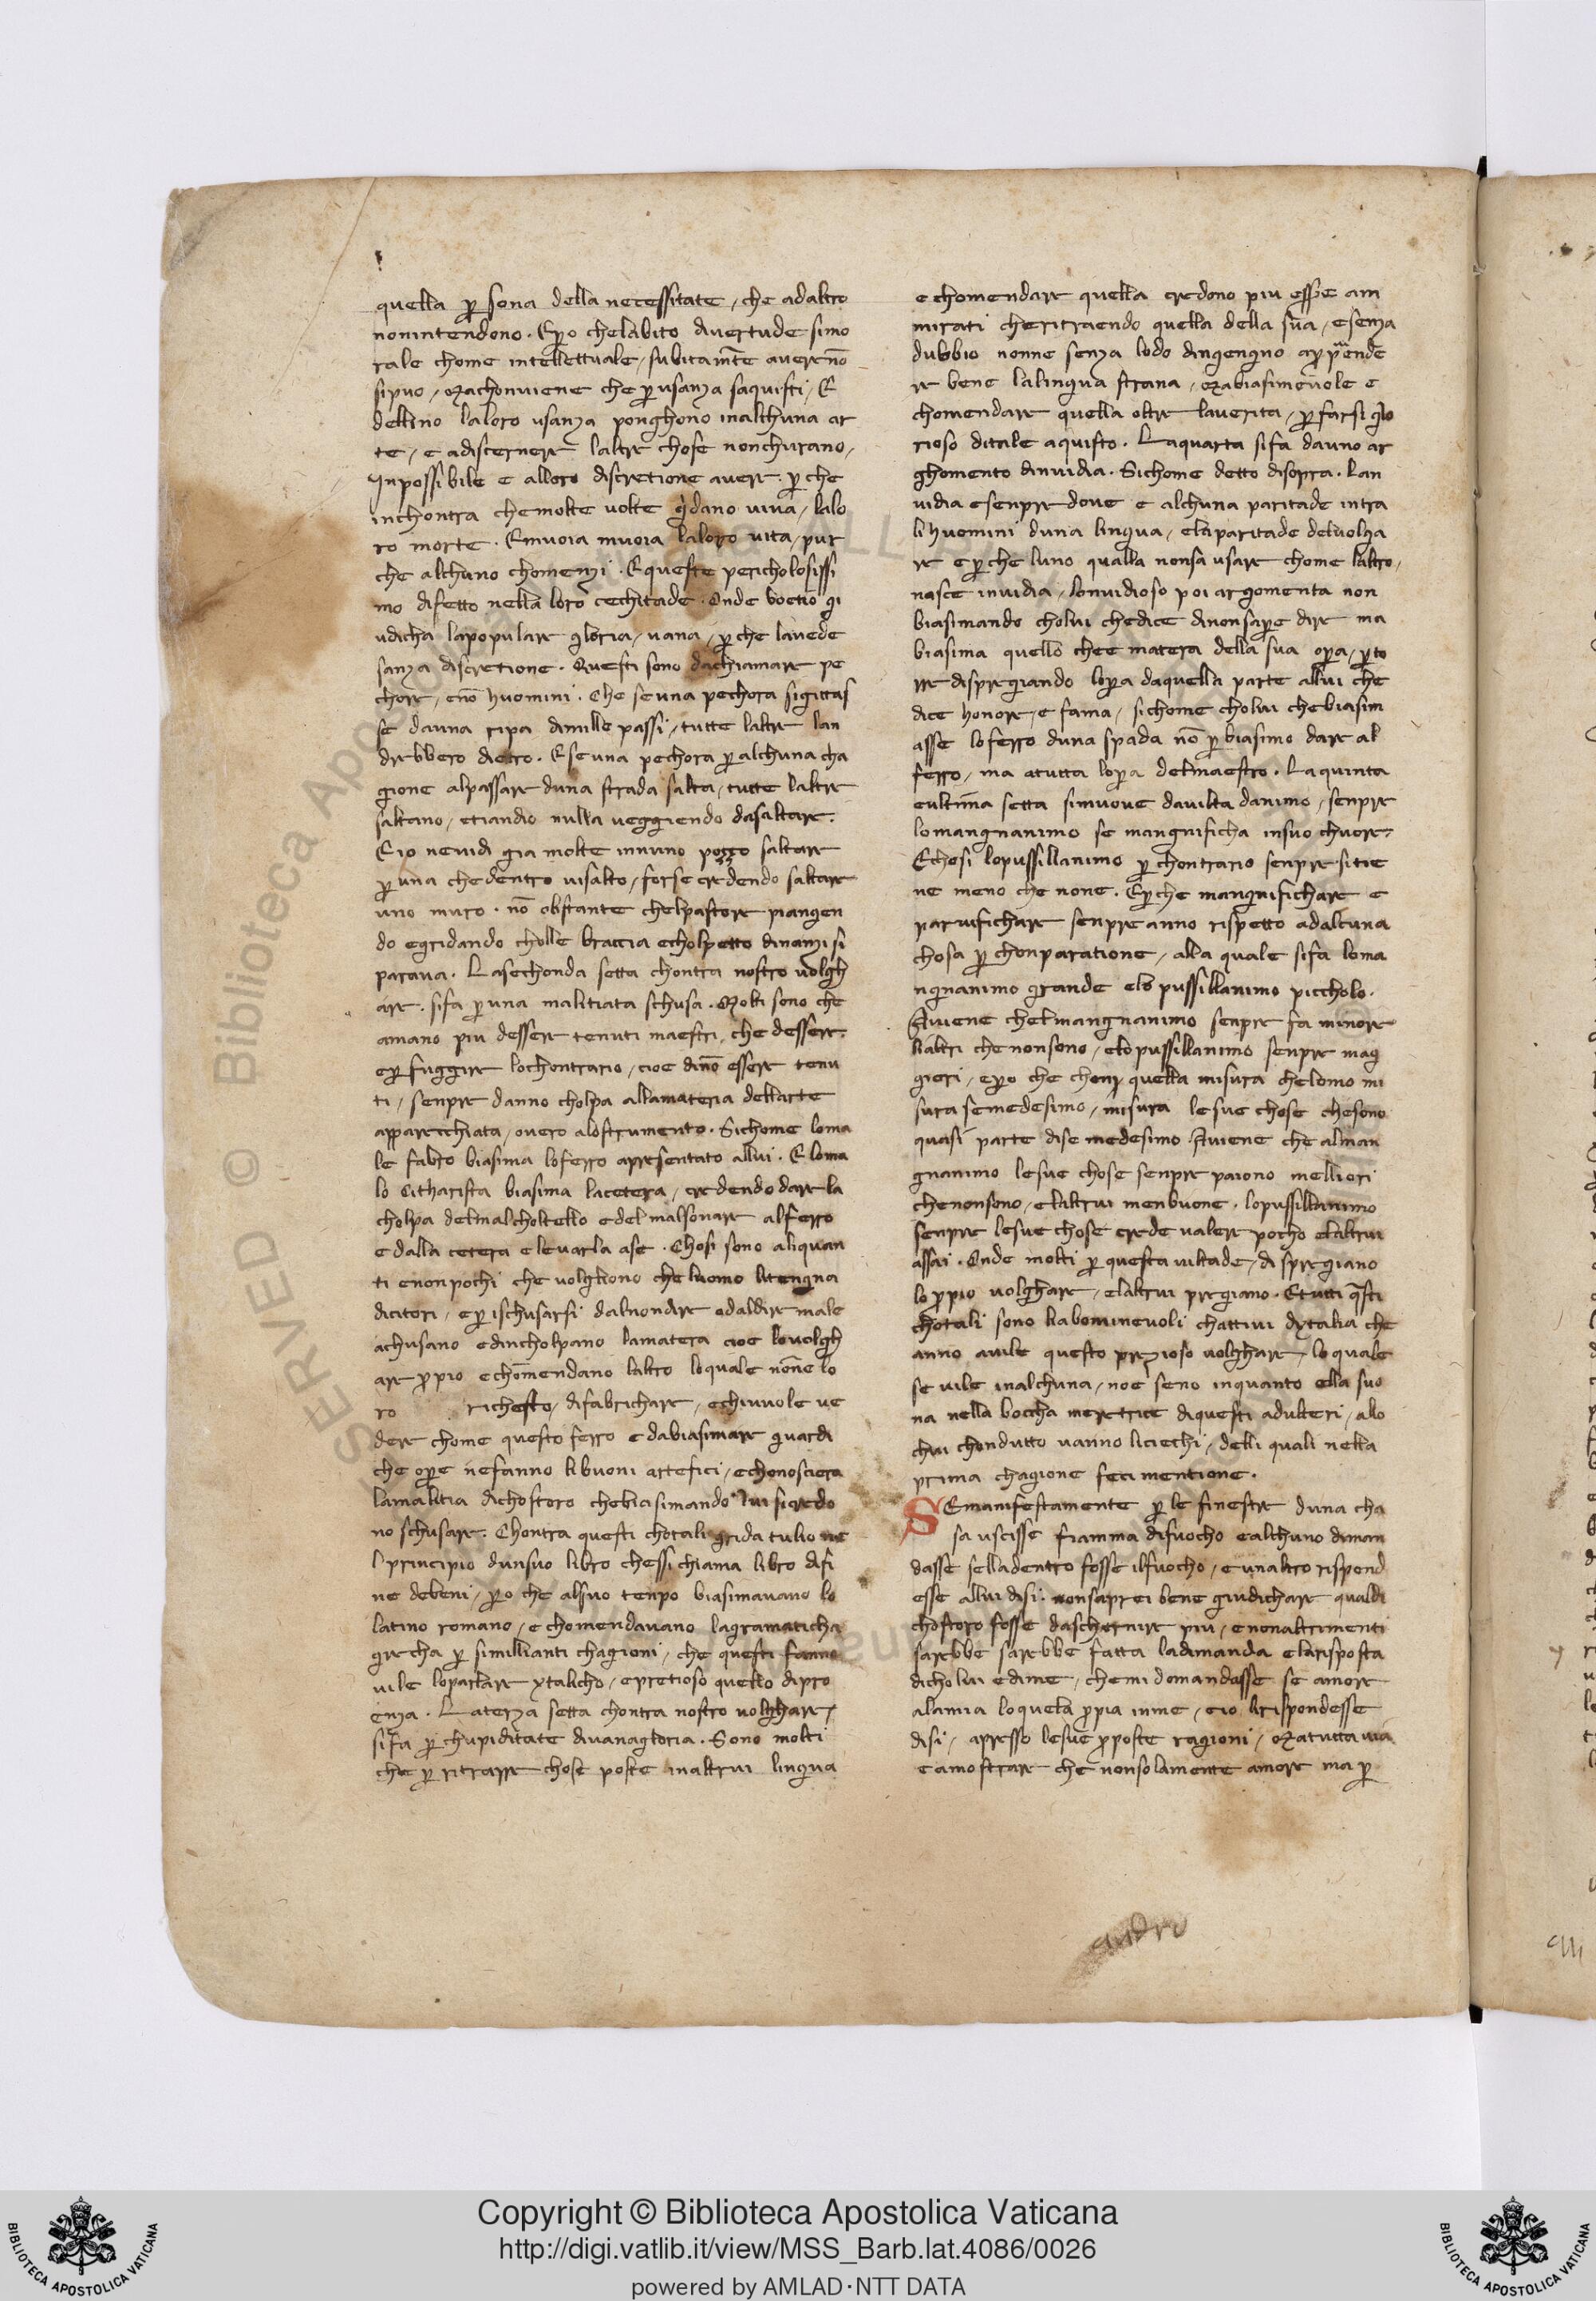 quella ꝑ sona della necessitate / che adaltro
nonintendono . Eꝑo chelabito divertude simo
rale chome intellettuale / subitam̅te avere no̅
sipuo / Machonviene che ꝑ usanza saquisti / E
dellino laloro usanza ponghono inalchuna ar
te / e adiscernere laltre chose nonchurano /
Inpossibile e alloro discretione avere . ꝑ che
inchontra chemolte uolte gridano viva / lalo
ro morte . E muoia muoia laloro vita / pur
che alchuno chomenzi . E queste pericholosissi
mo difetto nella loro cechitade . Onde boetio gi
udicha lapopulare gloria / vana / ꝑ che lavede
sanza discretione . Questi sono dachiamare pe
chore / eno̅ huomini . Che seuna pechora sigittas
se dauna ripa dimille passi / tutte laltre lan
drebbero dietro . E seuna pechora ꝑ alchuna cha
gione alpassare duna strada salta / tutte laltre
saltano / etiandio nulla veggiendo dasaltare .
E io nevidi gia molte innuno pozzo saltare
ꝑ una chedentro visalto / forse credendo saltare
uno muro . no̅ obstante chelpastore piangen
do egridando cholle braccia echolpetto dinanzi si
parava . Lasechonda setta chontra nostro uolgh
are . sifa ꝑ una malitiata schusa . Molti sono che
amano piu dessere tenuti maestri / che dessere .
eꝑ fuggire lochontrario / cioe dino̅ essere tenu
ti / senpre danno cholpa allamateria dellarte
apparecchiata / overo alostrumento . Sichome loma
le fabro biasima loferro apresentato allui . E loma
lo Citharista biasima lacetera / credendo dare la
cholpa delmalcholtello edel malsonare alferro
e dalla cetera e levarla ase . Chosi sono aliquan
ti enonpochi che uolghono che luomo litengna
dicitori / eꝑ ischusarsi dalnondire odaldire male
achusano edincholpano lamatera cioe louolgh
are ꝓpio echo̅mendano laltro loquale no̅ne lo
ro richesto / difabrichare / echivuole ve
dere chome questo ferro e dabiasimare guardi
che oꝑe nefanno libuoni artefici / echonosciera
lamalitia dichostoro chebiasimando lui sicredo
no schusare . Chontra questi chotali grida tulio ne
l principio dunsuo libro chessi chiama libro difi
ne debeni / ꝑo che alsuo tenpo biasimavano lo
latino romano / e chomendavano lagramaticha
grecha ꝑ simillianti chagioni / che questi fanno
vile loparlare ytalicho / epretioso quello dipro
enza . Laterza setta chontra nostro uolghare /
sifa ꝑ chupiditate divanagloria . Sono molti
che ꝑ ritrarre chose poste inaltrui lingua
e chomendare quella credono piu essere am
mirati cheritraendo quella della sua / esenza
dubbio nonne senza lodo dingengno apprende
re bene lalingua strana / Mabiasimevole e
chomendare quella oltre laverita / ꝑ farsi glo
rioso ditale aquisto . Laquarta sifa dauno ar
ghomento dinvidia . Sichome detto disopra . Lan
vidia esenpre dove e alchuna paritade intra
li huomini duna lingua / elaparitade deluolga
re e ꝑ che luno qualla nonsa usare chome laltro /
nasce invidia / lonvidioso poi argomenta non
biasimando cholui chedice dinonsaꝑe dire ma
biasima quello chee matera della sua oꝑa / ꝑ to
rre dispregiando loꝑa daquella parte allui che
dice honore / e fama / sichome cholui chebiasim
asse loferro duna spada no̅ ꝑ biasimo dare al
ferro / ma atutta loꝑa delmaestro . Laquinta
eultima setta simuove davilta danimo / senpre
lomangnanimo se mangnificha insuo chuore /
Echosi lopusillanimo ꝑ chontrario senpre sitie
ne meno che none . Eꝑche mangnifichare e
parvifichare senpre anno rispetto adalcuna
chosa ꝑ chonparatione / alla quale sifa loma
ngnanimo grande elo pussillanimo piccholo .
Aviene chelmangnanimo senpre fa minore
lialtri che nonsono / elo pussillanimo senpre mag
giori / eꝑo che chony quella misura chelomo mi
sura semedesimo / misura lesue chose chesono
quasi parte dise medesimo . Aviene che alman
gnanimo lesue chose senpre paiono melliori
chenonsono / elaltrui menbuone . lopussillanimo
senpre lesue chose crede valere pocho elaltrui
assai . Onde molti ꝑ questa viltade / di spregiano
lo ꝓpio uolghare / elaltrui pregiano . E tutti q̅sti
chotali sono liabominevoli chattivi dytalia che
anno avile questo prezioso uolghare / lo quale
se vile inalchuna / noe seno inquanto ella suo
na nella boccha meretrice diquesti adulteri / alo
chui chondutto vanno liciechi / delli quali nella
prima chagione feci mentione .
SEmanifestamente ꝑ le finestre duna cha
sa uscisse fiamma difuocho ealchuno diman
dasse selladentro fosse ilfuocho / e unaltro rispond
esse allui disi . nonsaprei bene giudichare qualdi
chostoro fosse daschernire piu / enonaltrimenti
sarebbe sarebbe fatta ladimanda elarisposta
dicholui edime / chemi domandasse se amore
alamia loquela ꝓpia inme / eio lirispondesse
disi / apresso lesue ꝓposte ragioni / Matuttavia
e amostrare che nonsolamente amore ma ꝑ
Copyright © Biblioteca Apostolica Vaticana
http://digi.vatlib.it/view/MSS_Barb.lat.4086/0026
powered by AMLAD·NTT DATA
BIBLIOTECA APOSTOLICA VATICANA
BIBLIOTECA APOSTOLICA VATICANA